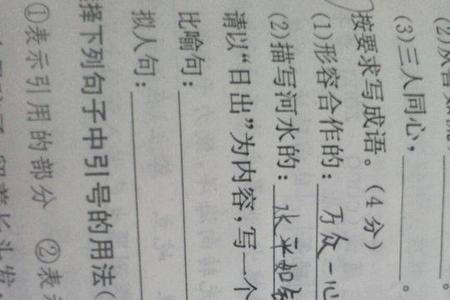 (2)
(3)三人同心,________。
按要求写成语。(4分)
(1)形容合作的:万众一心
(2)描写河水的:水平如
请以“日出”为内容,写一个
比喻句:
拟人句:
择下列句子中引号的用法(
①表示引用的部分 ②表